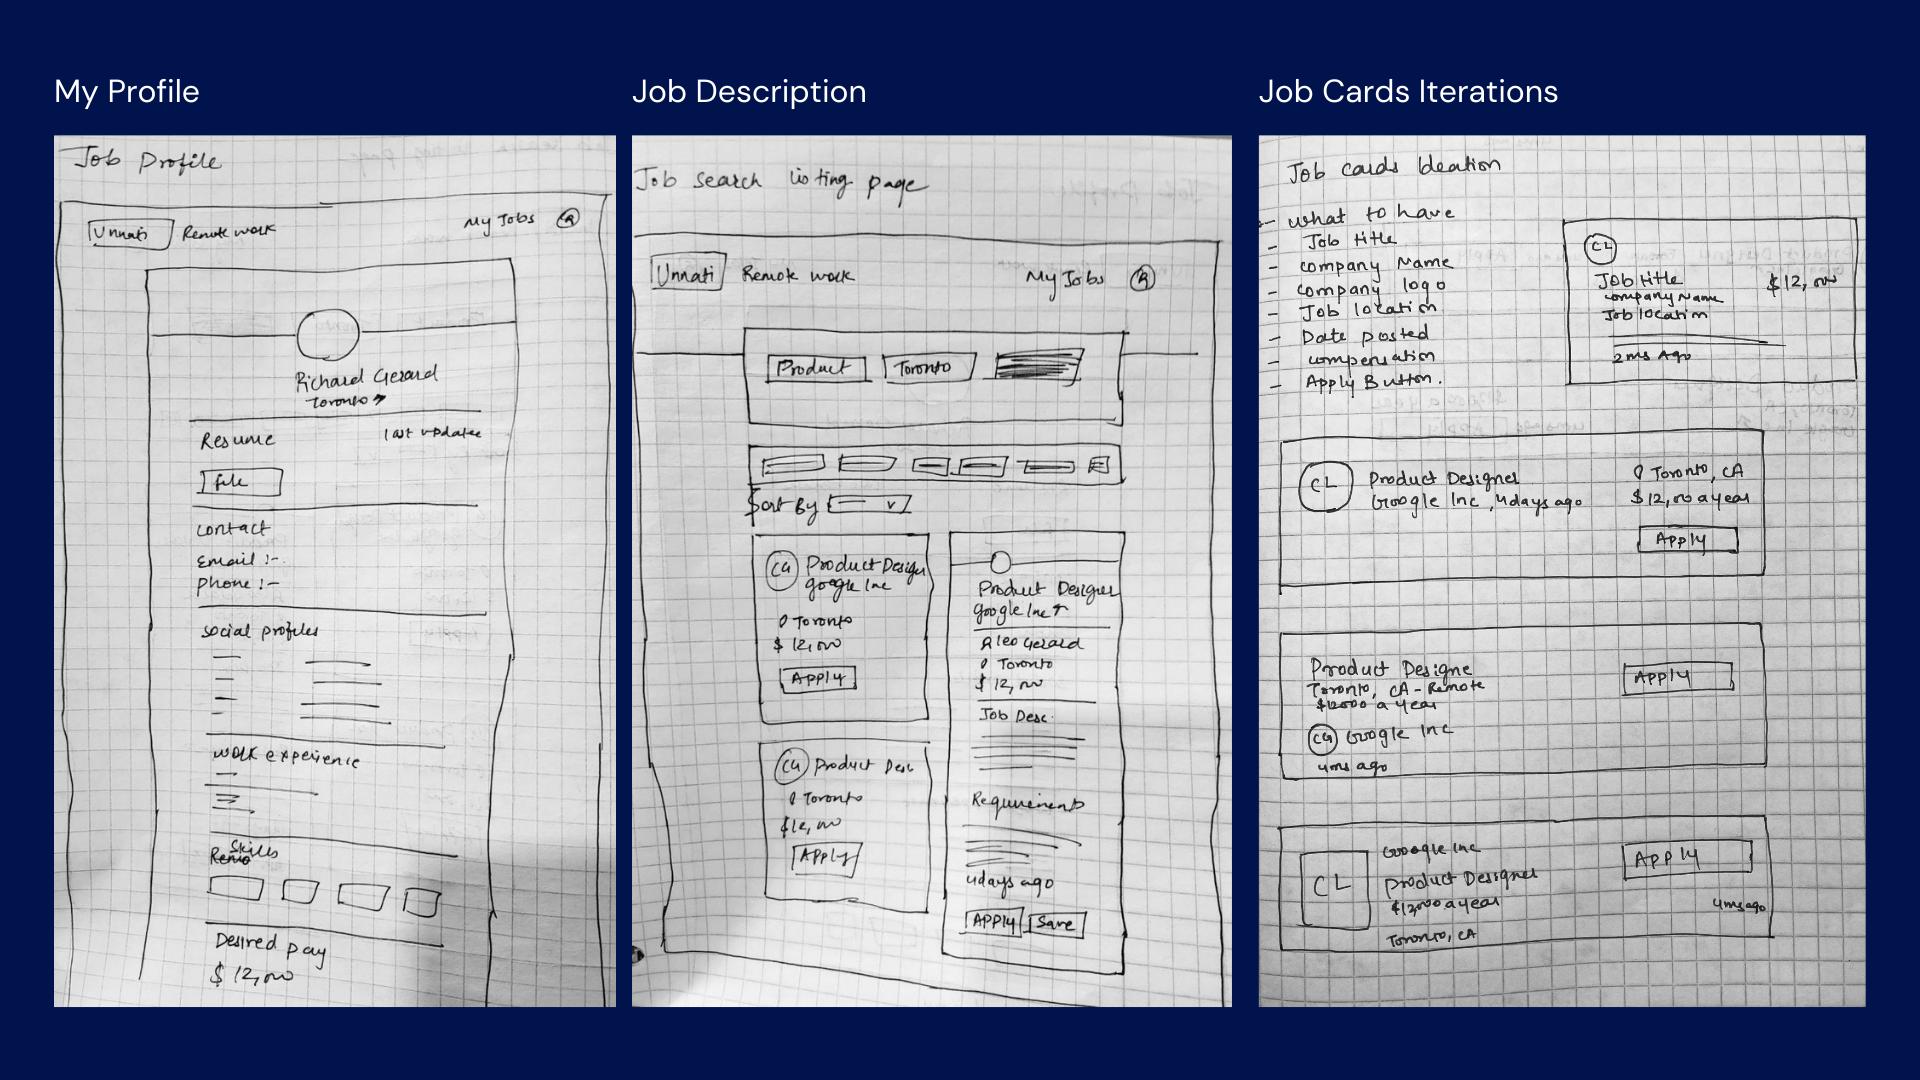 My Profile
Job Profile
Unnati Remote work My Jobs
Richard Gerard
Toronto
Resume last updated
file
Contact
Email :-
Phone :-
Social profiles
Work experience
Skills
Desired pay
$ 12,000
Job Description
Job search listing page
Unnati Remote work My Jobs R
Product Toronto
Sort By
Product Design
google Inc
Toronto
$ 12,000
Apply
Product Des
Toronto
$12,000
Apply
Product Designer
google Inc
Leo Gerard
Toronto
$ 12,000
Job Desc.
Requirements
4days ago
Apply Save
Job Cards Iterations
Job cards Ideation
- What to have
- Job title
- company Name
- company logo
- Job location
- Date posted
- compensation
- Apply Button.
CL
Job title $12,000
company Name
Job location
2ms Ago
CL Product Designer Toronto, CA
Google Inc, 4days ago $12,000 a year
Apply
Product Designe Apply
Toronto, CA - Remote
$12000 a year
Google Inc
4ms ago
Google Inc Apply
CL Product Designer
$12,000 a year 4ms ago
Toronto, CA